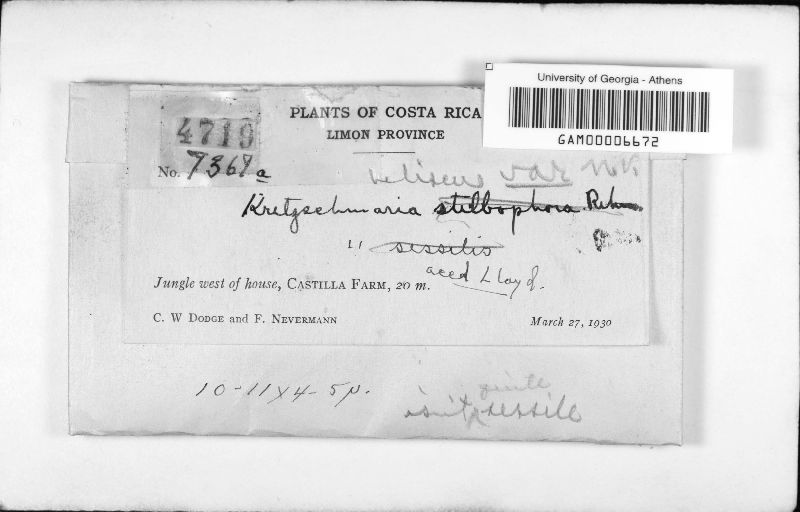 University of Georgia - Athens
GAM00006672
PLANTS OF COSTA RICA
LIMON PROVINCE
4719
No. 7367a
var
Kretzschmaria stilbophora Rehm
" sessilis
acc Lloyd.
Jungle west of house, CASTILLA FARM, 20 m.
C. W DODGE and F. NEVERMANN
March 27, 1930
10-11x4-5µ.
quite
sessile